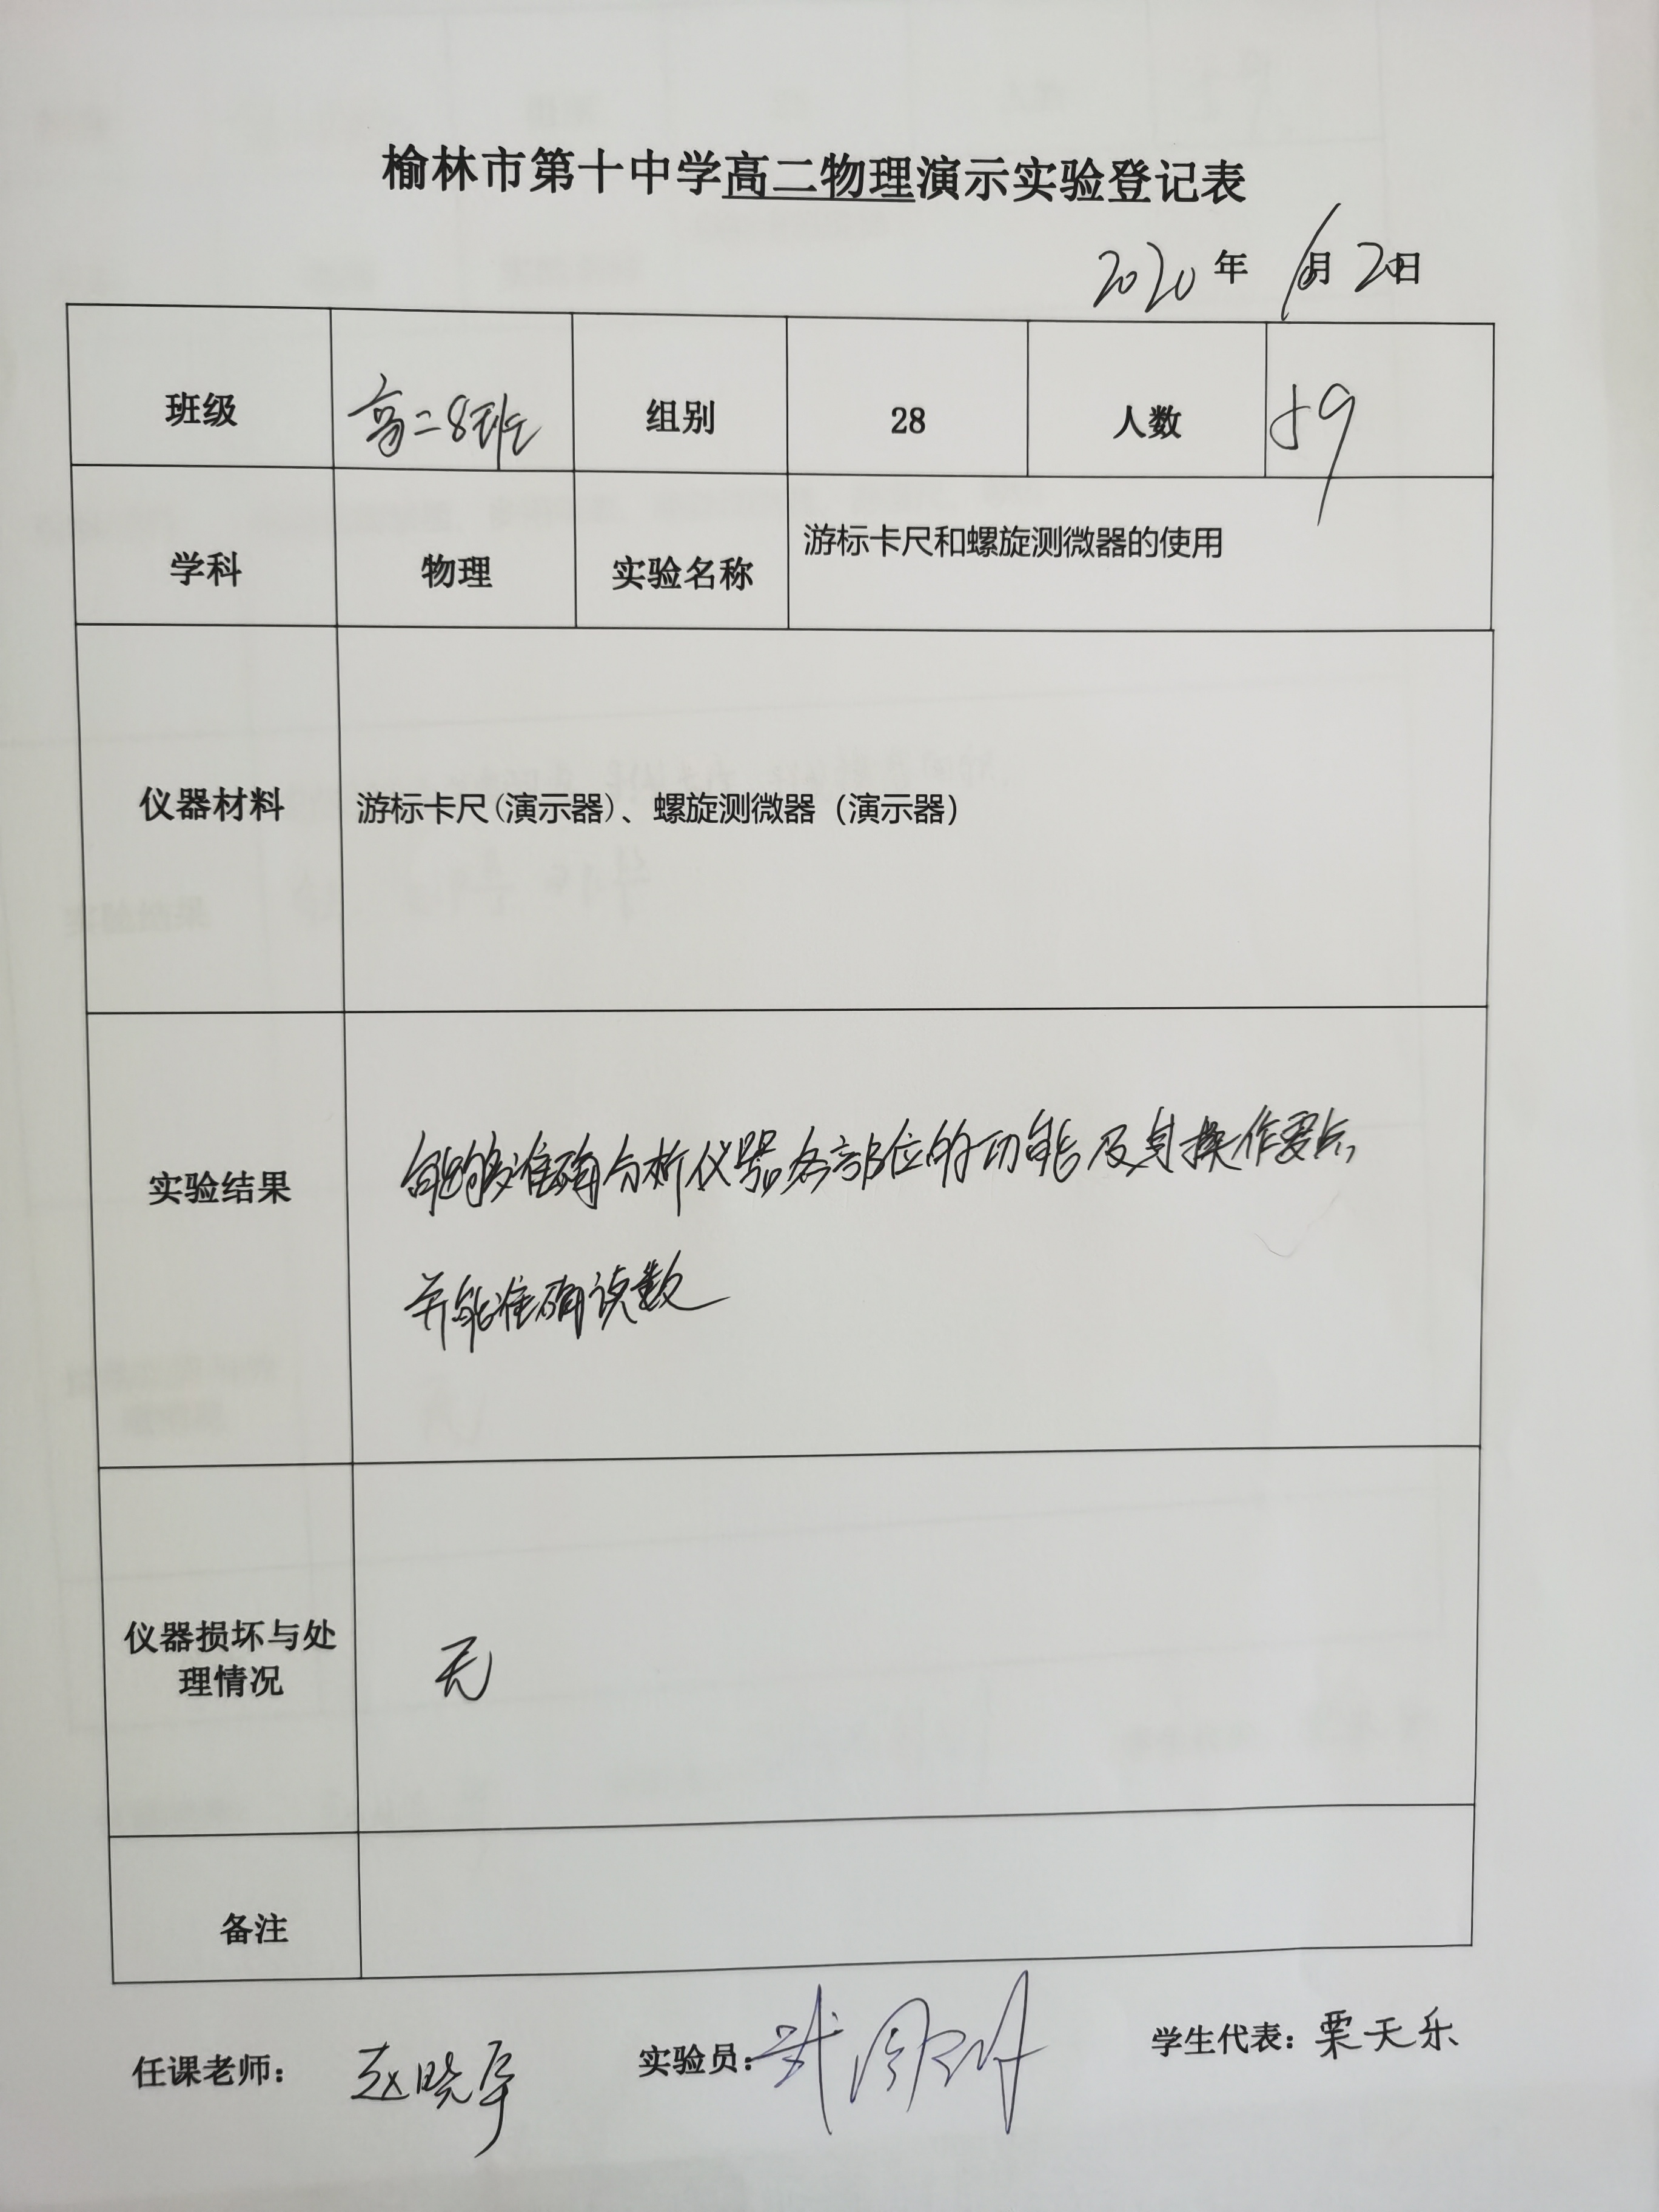 榆林市第十中学高二物理演示实验登记表
2020 年 6月 20日
班级 高二8班 组别 28 人数 59
学科 物理 实验名称 游标卡尺和螺旋测微器的使用
仪器材料 游标卡尺(演示器)、螺旋测微器（演示器）
实验结果 能够准确分析仪器各部位的功能及其操作要点
并能准确读数
仪器损坏与处
理情况 无
备注
任课老师： 赵晓宇 实验员： 学生代表：栗天乐